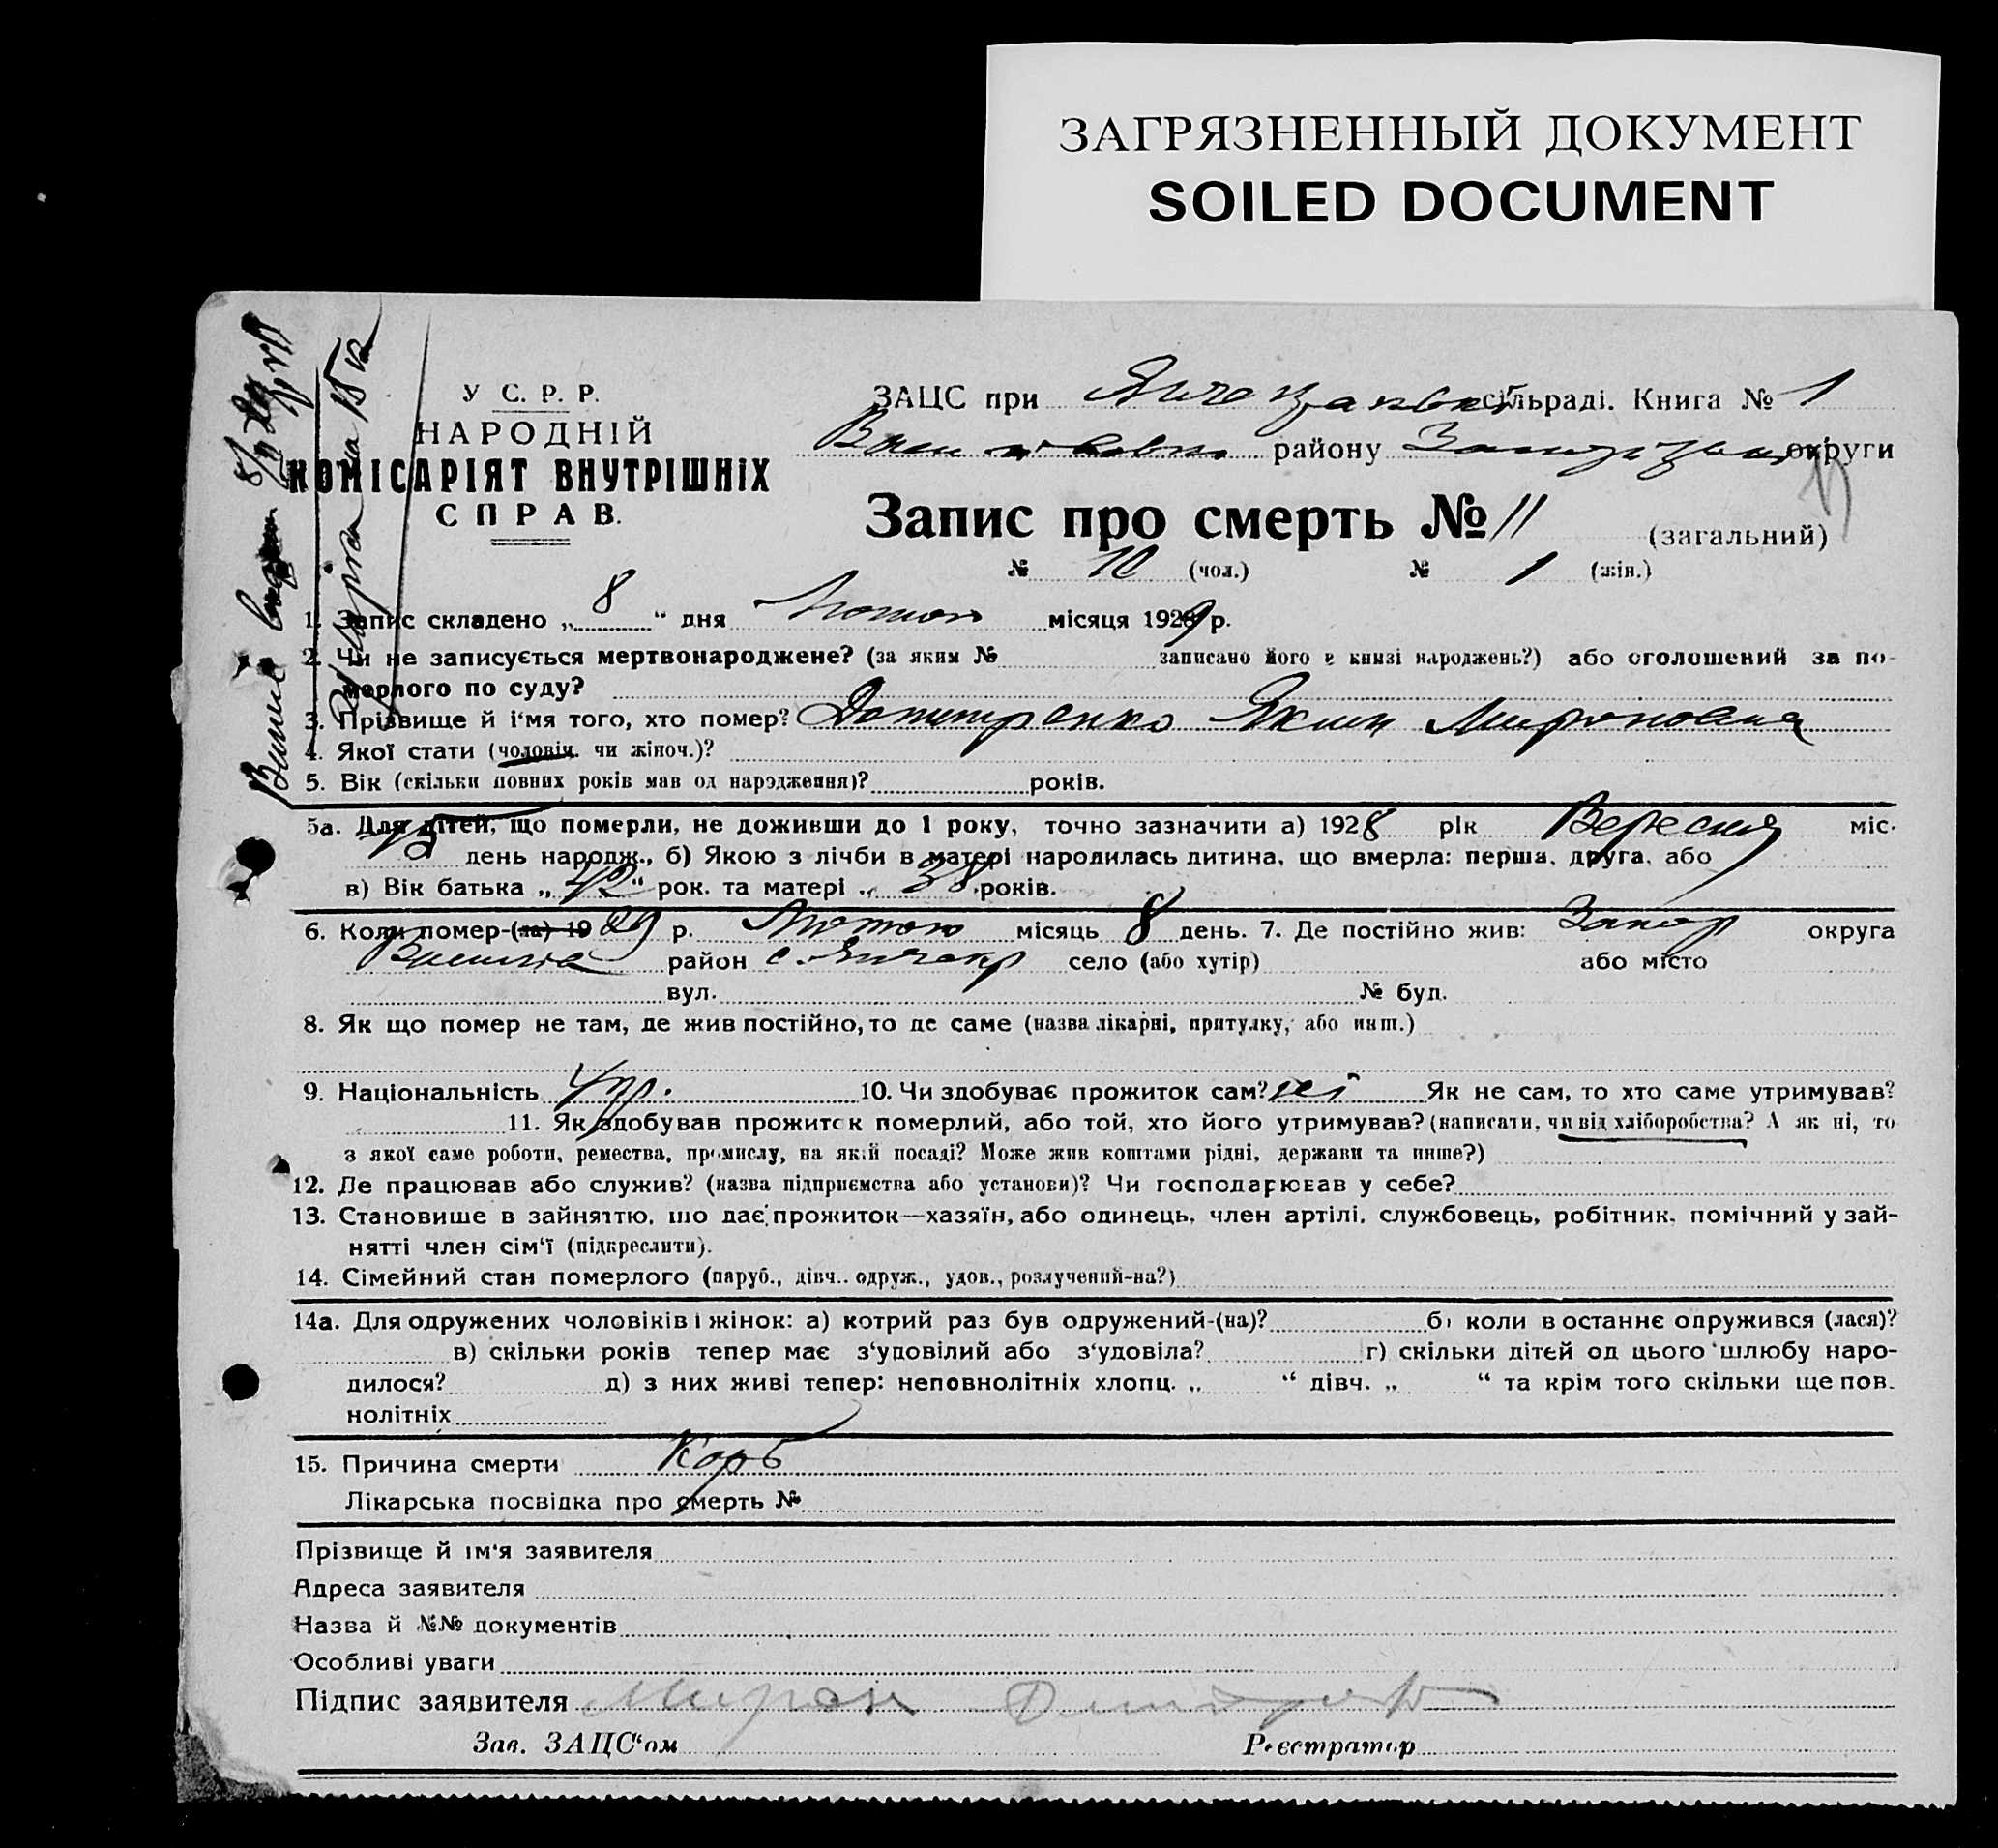 ЗАГРЯЗНЕННЫЙ ДОКУМЕНТ
SOILED DOCUMENT
У С. Р. Р.
НАРОДНІЙ
КОМІСАРІЯТ ВНУТРІШНІХ
СПРАВ.
ЗАЦС при сільраді. Книга № 1
району округи
Запис про смерть № 11 (загальний)
№ 10 (чол.) № 1 (жін.)
1. Запис складено „ 8 “ дня Лютого місяця 1929 р.
2. Чи не записується мертвонароджене? (за яким № записано його в книзі народжень?) або оголошений за по-
мерлого по суду?
3. Прізвище й ім'я того, хто помер? Яким Миронович
4. Якої стати (чоловіч. чи жіноч.)?
5. Вік (скільки повних років мав од народження)? років.
5а. Для дітей, що померли, не доживши до 1 року, точно зазначити а) 1928 рік Вересня міс.
15 день народж., б) Якою з лічби в матері народилась дитина, що вмерла: перша, друга, або
в) Вік батька „ 42 “ рок. та матері „ 38 років.
6. Коли помер-(ла) 1929 р. Лютого місяць 8 день. 7. Де постійно жив: Запор округа
район село (або хутір) або місто
вул. № буд.
8. Як що помер не там, де жив постійно, то де саме (назва лікарні, притулку, або инш.)
9. Національність Укр. 10. Чи здобував прожиток сам? ні Як не сам, то хто саме утримував?
11. Як здобував прожиток померлий, або той, хто його утримував? (написати, чи від хліборобства? А як ні, то
з якої саме роботи, ремества, промислу, на якій посаді? Може жив коштами рідні, держави та инше?)
12. Де працював або служив? (назва підприємства або установи)? Чи господарював у себе?
13. Становище в зайняттю, що дає прожиток—хазяїн, або одинець, член артілі, службовець, робітник, помічний у зай-
нятті член сім'ї (підкреслити).
14. Сімейний стан померлого (паруб., дівч., одруж., удов., розлучений-на?)
14а. Для одружених чоловіків і жінок: а) котрий раз був одружений-(на)? б) коли востаннє одружився (лася)?
в) скільки років тепер має з'удовілий або з'удовіла? г) скільки дітей од цього шлюбу наро-
дилося? д) з них живі тепер: неповнолітніх хлопц. „ “ дівч. „ “ та крім того скільки ще пов.
нолітніх
15. Причина смерти Корь
Лікарська посвідка про смерть №
Прізвище й ім'я заявителя
Адреса заявителя
Назва й №№ документів
Особливі уваги
Підпис заявителя Мирон
Зав. ЗАЦС'ом Реєстратор